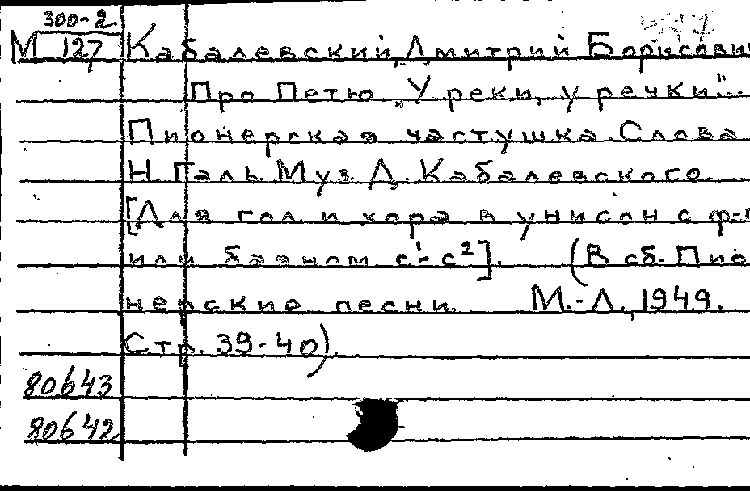 300-2
М 127 Кабалевский, Дмитрий Борисови
Про Петю „У реки, у речки"..
Пионерская частушка. Слова
Н. Галь. Муз. Д. Кабалевского.
[Для гол. и хора в унисон с ф-п
или баяном с¹-с²]. (В сб. Пио
нерские песни. М.-Л., 1949.
Стр. 39-40).
80643
80642